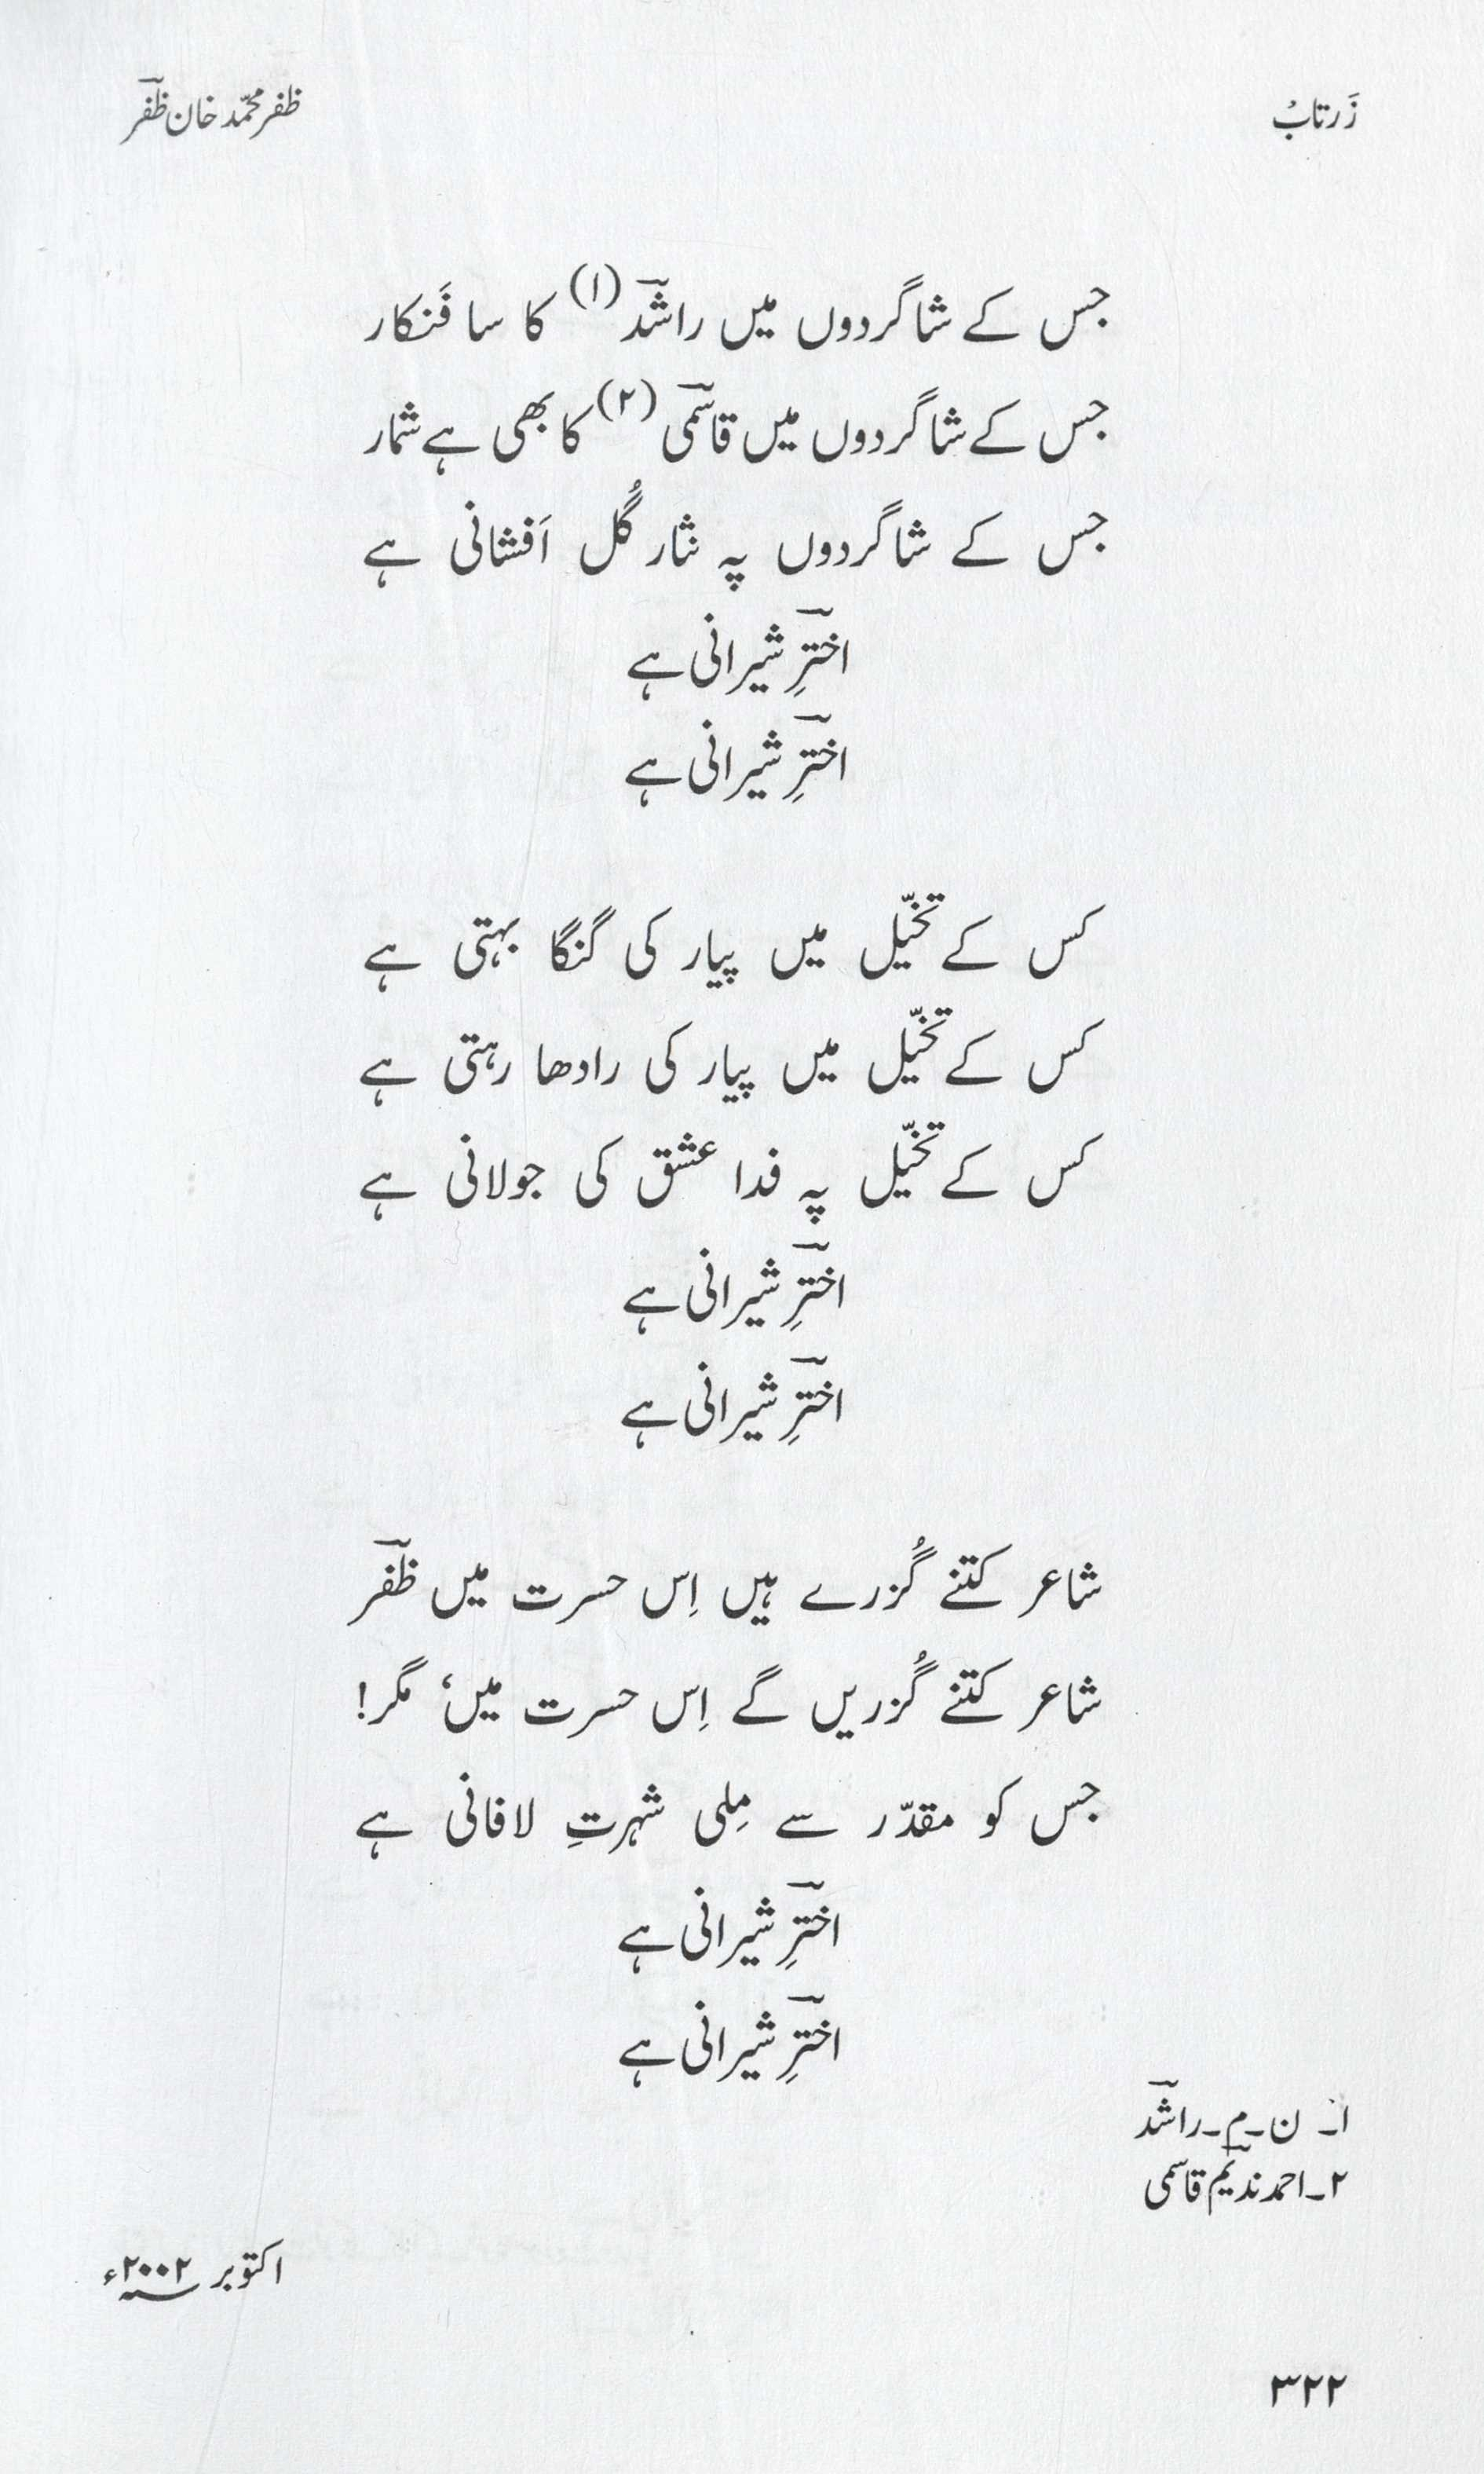 زَرتابْ
ظفر محمّد خان ظفؔر
جس کے شاگردوں میں راشؔد (۱) کا سا فَنکار
جس کے شاگردوں میں قاسمؔی (۲) کا بھی ہے شمار
جس کے شاگردوں پہ نثار گُل اَفشانی ہے
اخترؔ شیرانی ہے
اخترؔ شیرانی ہے
کس کے تخیّل میں پیار کی گنگا بہتی ہے
کس کے تخیّل میں پیار کی رادھا رہتی ہے
کس کے تخیّل پہ فدا عشق کی جولانی ہے
اخترؔ شیرانی ہے
اخترؔ شیرانی ہے
شاعر کتنے گُزرے ہیں اِس حسرت میں ظفؔر
شاعر کتنے گُزریں گے اِس حسرت میں، مگر!
جس کو مقدّر سے مِلی شہرتِ لافانی ہے
اخترؔ شیرانی ہے
اخترؔ شیرانی ہے
۱۔ ن۔م۔راشؔد
۲۔احمد ندیمؔ قاسمی
اکتوبر ۲۰۰۲ء
۳۲۲